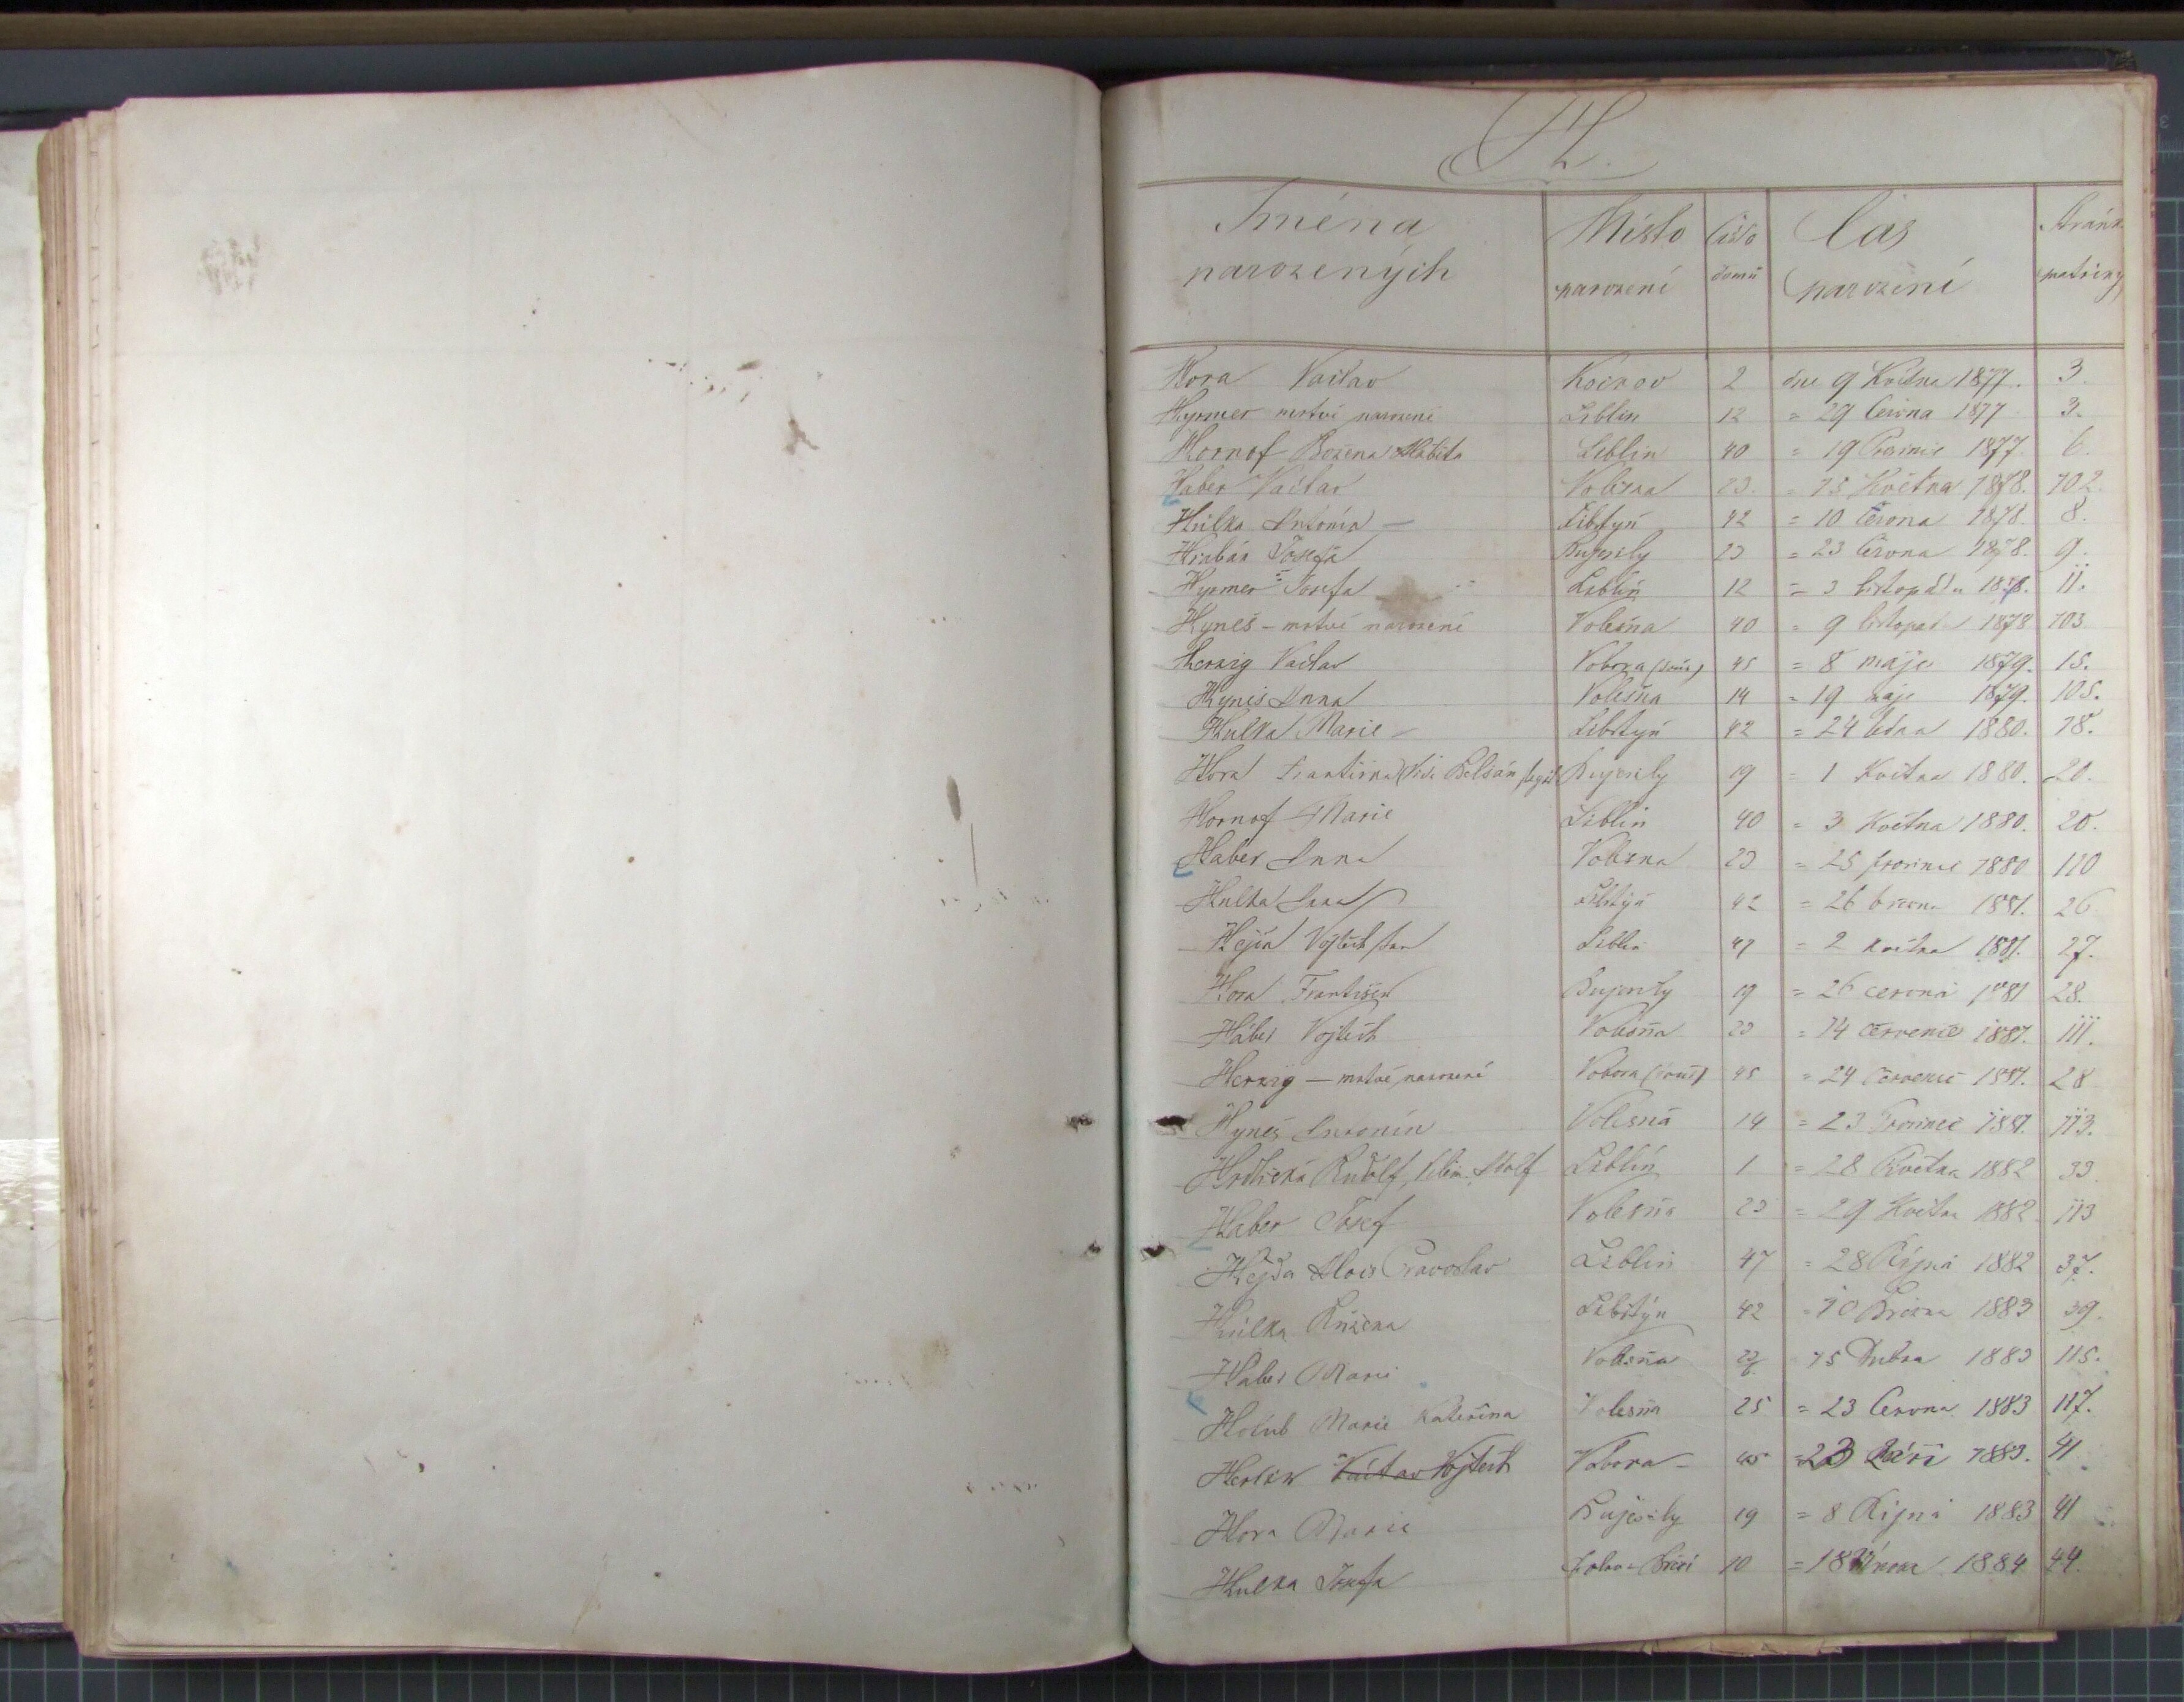 H.
Jména narozených Místo narození Číslo domu Čas narození Stránk. matriky
Hora Václav Kočkov 2 dne 9 Května 1877. 3
Hyrmer mrtvě narozené Liblín 12 = 29 Června 1877 3.
Hornof Božena Liblin 40 = 19 Prosince 1877. 6.
Haber Václav Volesna 23. = 15 Května 1878. 102.
Hůlka Antonín — Libštyn 42 = 10 Června 1878. 8.
Hrabák Josefa Bujesily 23 = 23 Června 1878. 9.
Hyrmer Josefa Liblin 12 = 3 listopadu 1878. 11.
Hyneš – mrtvě narozené Volesňa 40 = 9 listopad 1878 103
Herzig Václav Vobora 45 = 8 máje 1879. 15.
Hyneš Anna Volesňa 14 = 19 máje 1879. 105.
Hulka Marie – Libštyn 42 = 24 1880. 18.
Hora Františka Bujesily 19 = 1 Května 1880. 20.
Hornof Marie Liblin 40 = 3 Května 1880. 20.
Haber Anna Volesna 23 = 25 prosince 1880 110
Hulka Anna Libštýn 42 = 26 března 1881. 26
Hejda Vojtěch Jan Liblin 47 = 2 května 1881. 27.
Hora František Bujesily 19 = 26 června 1881 28.
Háber Vojtěch Volesňa 23 = 14 července 1881. 111.
Herzig — mrtvě narozené Vobora 45 = 24 července 1881. 28
Hyneš Antonín Volesná 14 = 23 Prosince 1881. 113.
Hrdlička Rudolf, Adolf Liblín 1 = 28 Května 1882 33
Haber Josef Volesňa 23 = 29 Května 1882 113
Hejda Alois Pravoslav Liblin 47 = 28 Října 1882 37.
Hůlka Růžena Libštýn 42 = 10 Března 1883 39.
Haber Marie Volesňa 15 Dubna 1883 115.
Holub Marie Kateřina Volesňa 25 = 23 Června 1883 117.
Václav Vojtěch Vobora – 45 = 23 Září 1883. 41
Hora Marie Bujesily 19 = 8 Října 1883 41
Hulka Josefa 10 = 18 Února 1884 44.